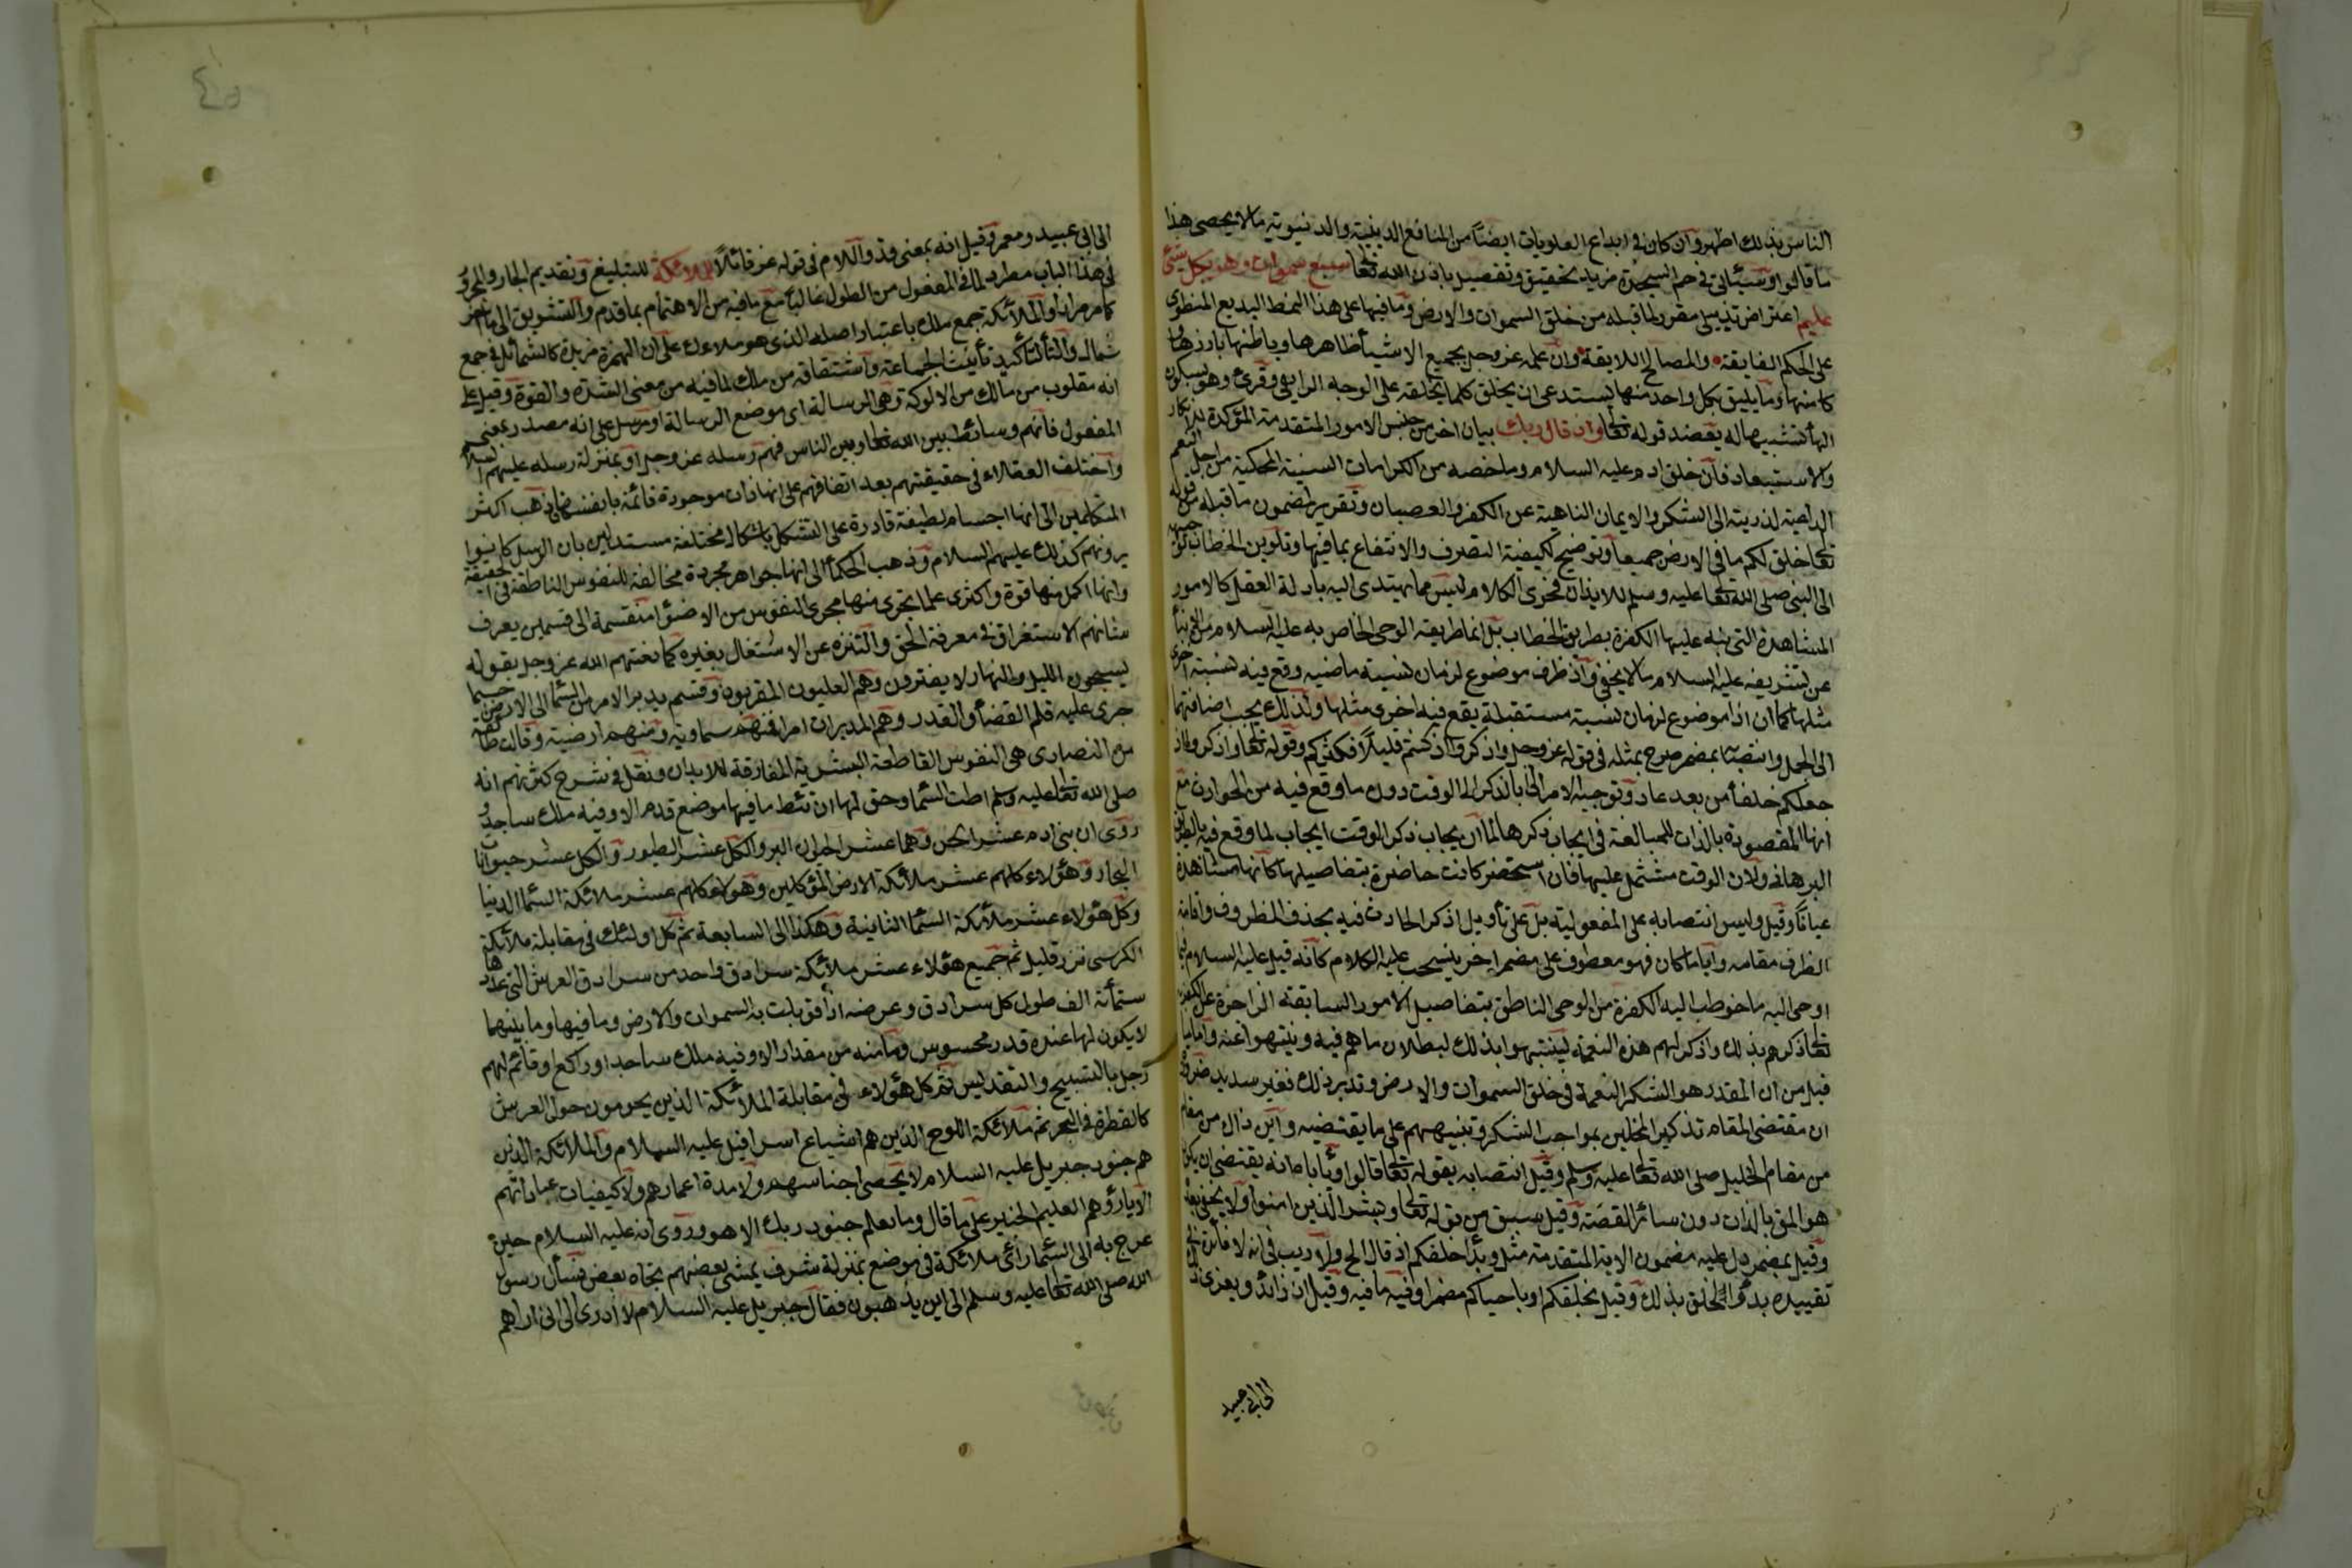 الناس بذلك اظهر وان كان في ابداع العلويات ايضا من المنافع الدينية والدنيوية ما لا يحصى هذا
ما قالوا وسيأتي في حم السجدة مزيد تحقيق وتفصيل باذن الله تعالى سبع سموات وهو بكل شئ
عليم اعتراض تذييلي مقرر لما قبله من خلق السموات والارض وما فيها على هذا النمط البديع المنطوى
على الحكم الفايقة والمصالح اللايقة وان علمه عز وجل بجميع الاشياء ظاهرها وباطنها بارزها
كامنها وما يليق بكل واحد منها يستدعى ان يخلق كلما يخلقه على الوجه الرايق وقرئ وهو بسكون
الهاء تشبيها له بعضد قوله تعالى واذ قال ربك بيان اخر من جنس الامور المتقدمة المؤكدة للانكار
والاستبعاد فان خلق ادم عليه السلام وما خصه من الكرامات السنية المحكية من اجل النعم
الداعية لذريته الى الشكر والايمان الناهية عن الكفر والعصيان وتقرير لمضمون ما قبله من قوله
تعالى خلق لكم ما في الارض جميعا وتوضيح لكيفية التصرف والانتفاع بما فيها وتلوين الخطاب بتوجيهه
الى النبي صلى الله تعالى عليه وسلم للايذان بان فحوى الكلام ليس مما يهتدى اليه بادلة العقل كالامور
المشاهدة التي نبه عليها الكفرة بطريق الخطاب بل انما طريقه الوحي الخاص به عليه السلام وفيه من الانباء
عن تشريفه عليه السلام ما لا يخفى واذ ظرف موضوع لزمان نسبة ماضية وقع فيه نسبة اخرى
مثلها كما ان اذا موضوع لزمان نسبة مستقبلة يقع فيه اخرى مثلها ولذلك يجب اضافتهما
الى الجمل وانتصابه بمضمر صرح بمثله في قوله عز وجل واذكروا اذ كنتم قليلا فكثركم وقوله تعالى واذكروا اذ
جعلكم خلفاء من بعد عاد وتوجيه الامر الخ بالذكر الى الوقت دون ما وقع فيه من الحوادث مع
انها المقصودة بالذات للمبالغة في ايجاب ذكرها لما ان ايجاب ذكر الوقت ايجاب لما وقع فيه بالطريق
البرهاني ولان الوقت مشتمل عليها فان استحضر كانت حاضرة بتفاصيلها كانها مشاهدة
عيانا وقيل وليس انتصابه على المفعولية بل على تأويل اذكر الحادث فيه بحذف المظروف واقامة
الظرف مقامه وايا ما كان فهو معطوف على مضمر اخر ينسحب عليه الكلام كانه قيل عليه السلام غب ما
اوحى اليه ما خوطب اليه الكفرة من الوحي الناطق بتفاصيل الامور السابقة الزاجرة عن الكفر به
تعالى ذكرهم بذلك واذكر لهم هذه النعمة لينتبهوا بذلك لبطلان ما هم فيه وينتهوا عنه واما ما
قيل من ان المقدر هو الشكر النعمة في خلق السموات والارض وتدبر ذلك فغير سديد ضرورة
ان مقتضى المقام تذكير المخلين بمواجب الشكر وتنبيههم على ما يقتضيه واين ذاك من مقام
من مقام الخليل صلى الله تعالى عليه وسلم وقيل انتصابه بقوله تعالى قالوا ويأباه انه يقتضى ان يكون
هو المق بالذات دون سائر القصة وقيل سبق من قوله تعالى وبشر الذين امنوا ولا يخفى بعده
وقيل بمضمر دل عليه مضمون الاية المتقدمة مثل وبدأ خلقكم اذ قال الخ ولا ريب في انه لا فائدة في
تقييده بدء الخلق بذلك وقيل بخلقكم او باحياكم مضمرا وفيه ما فيه وقيل اذ زائدة ويعزى ذلك
الى ابي عبيد
الى ابي عبيد ومعمر وقيل انه بمعنى قد واللام في قوله عز قائلا للملائكة للتبليغ وتقديم الجار والمجرور
في هذا الباب مطرد لما في المفعول من الطول غالبا مع ما فيه من الاهتمام بما قدم والتشويق الى ما اخر
كما مر مرارا والملائكة جمع ملك باعتبار اصله الذي هو ملاءك على ان الهمزة مزيدة كالشمائل في جمع
شمأل والتاء لتأكيد تأنيث الجماعة واشتقاقه من ملك لما فيه من معنى الشدة والقوة وقيل على
انه مقلوب من مالك من الالوكة وهى الرسالة اى موضع الرسالة او مرسل على انه مصدر بمعنى
المفعول فانهم وسائط بين الله تعالى وبين الناس فهم رسله عز وجل او بمنزلة رسله عليهم السلام
واختلف العقلاء في حقيقتهم بعد اتفاقهم على انها ذوات موجودة قائمة بانفسها فذهب اكثر
المتكلمين الى انها اجسام لطيفة قادرة على التشكل باشكال مختلفة مستدلين بان الرسل كانوا
يرونهم كذلك عليهم السلام وذهب الحكماء الى انها جواهر مجردة مخالفة للنفوس الناطقة في الحقيقة
وانها اكمل منها قوة واكثرى علما تجرى منها مجرى النفوس من الاضواء منقسمة الى قسمين يعرف
شانهم الاستغراق في معرفة الحق والتنزه عن الاشتغال بغيره كما نعتهم الله عز وجل بقوله
يسبحون الليل والنهار لا يفترون وهم العليون المقربون وقسم يدبر الامر من السماء الى الارض حسبما
جرى عليه قلم القضاء والقدر وهم المدبرات امرا فمنهم سماوية ومنهم ارضية وقالت طائفة
من النصارى هى النفوس القاطعة البشرية المفارقة للابدان ونقل في شرح كثرتهم انه
صلى الله تعالى عليه وسلم اطت السماء وحق لها ان تئط ما فيها موضع قدم الا وفيه ملك ساجد
روى ان بني ادم عشر الجن وهما عشر حيوان البر والكل عشر الطيور والكل عشر حيوانات
البحار وهؤلاء كلهم عشر ملائكة الارض الموكلين وهؤلاء كلهم عشر ملائكة السماء الدنيا
وكل هؤلاء عشر ملائكة السماء الثانية وهكذا الى السابعة ثم كل اولئك في مقابلة ملائكة
الكرسي نزر قليل ثم جميع هؤلاء عشر ملائكة سرادق واحد من سرادق العرش التي عددها
ستمائة الف طول كل سرادق وعرضه اذا قوبلت به السموات والارض وما فيها وما بينهما
لا يكون لها عنده قدر محسوس وما منه من مقدار الا وفيه ملك ساجد او راكع او قائم لهم
زجل بالتسبيح والتقديس ثم كل هؤلاء في مقابلة الملائكة الذين يحومون حول العرش
كالقطرة في البحر ثم ملائكة اللوح الذين هم اشياع اسرافيل عليه السلام والملائكة الذين
هم جنود جبريل عليه السلام لا يحصى اجناسهم ولا مدة اعمارهم ولا كيفيات عباداتهم
الا باريؤهم العليم الخبير على ما قال وما يعلم جنود ربك الا هو وروى انه عليه السلام حين
عرج به الى السماء رأى ملائكة في موضع بمنزلة شرف يمشي بعضهم تجاه بعض فسأل رسول
الله صلى الله تعالى عليه وسلم الى اين يذهبون فقال جبريل عليه السلام لا ادرى الا انى اراهم